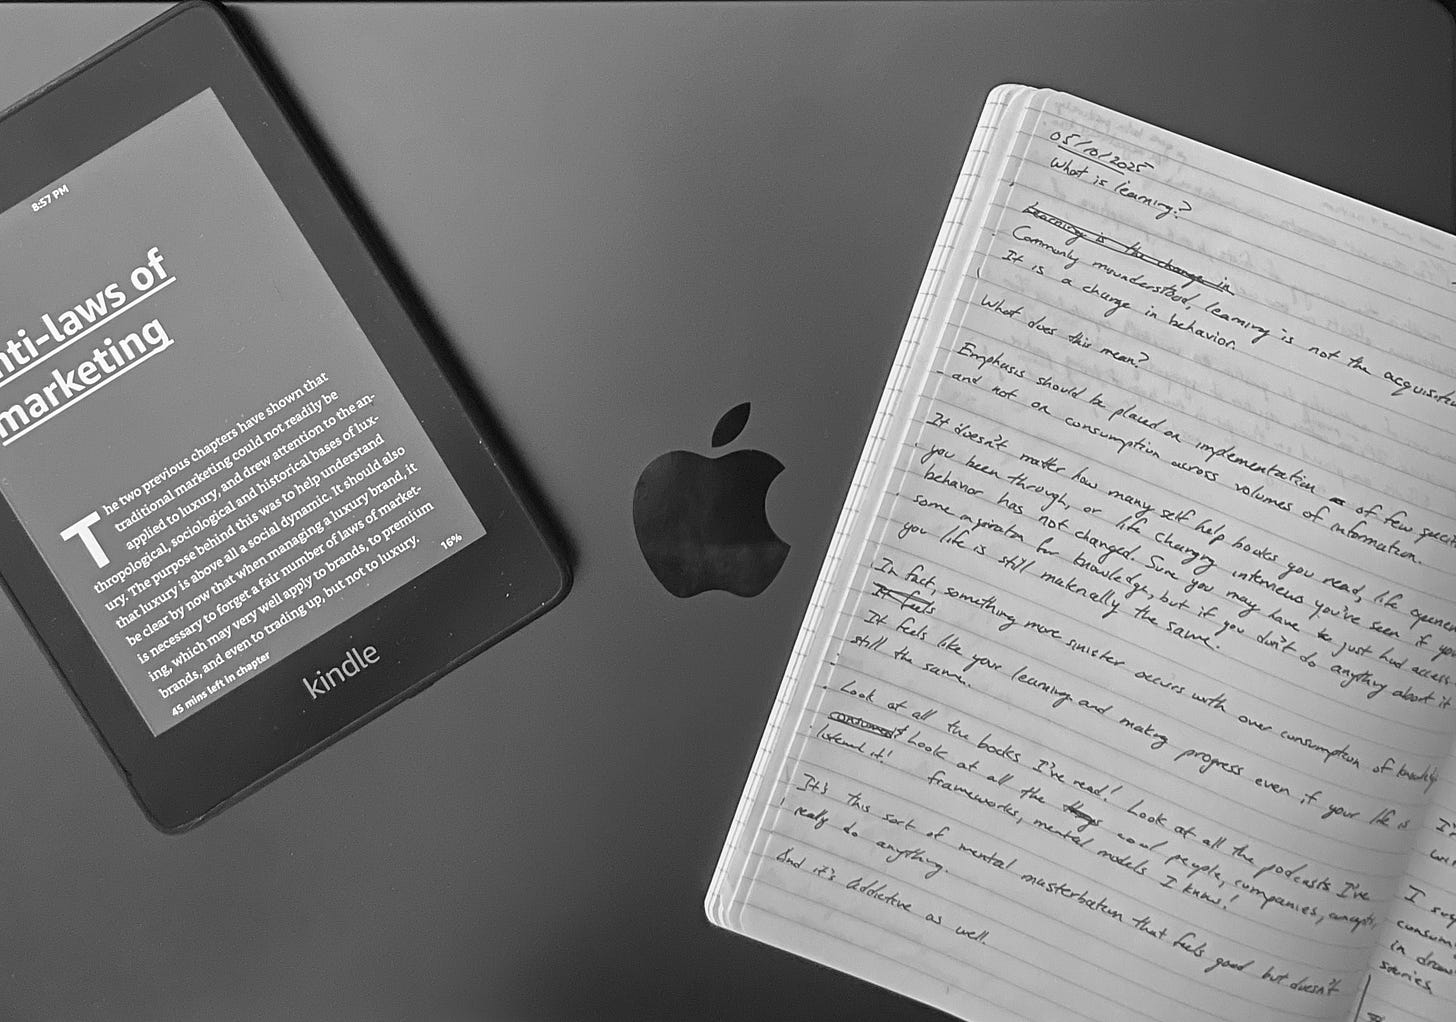 8:57 PM
nti-laws of
marketing
The two previous chapters have shown that
traditional marketing could not readily be
applied to luxury, and drew attention to the an-
thropological, sociological and historical bases of lux-
ury. The purpose behind this was to help understand
that luxury is above all a social dynamic. It should also
be clear by now that when managing a luxury brand, it
is necessary to forget a fair number of laws of market-
ing, which may very well apply to brands, to premium
brands, and even to trading up, but not to luxury.
45 mins left in chapter 16%
kindle
05/10/2025
What is learning?
Learning is the change in
Commonly misunderstood, learning is not the
It is a change in behavior.
What does this mean?
Emphasis should be placed on implementation of few
and not on consumption across volumes of information.
It doesn't matter how many self help books you read, life
you been through, or life changing interviews you've seen if
behavior has not changed. Sure you may have just had access
some for knowledge, but if you don't do anything about it
you life is still materially the same.
In fact, something more sinister occurs with over consumption of
It feels
It feels like your learning and making progress even if your life is
still the same.
Look at all the books I've read! Look at all the podcasts I've
consumed! Look at all the things cool people, companies, concepts,
listened it! frameworks, mental models I know!
It's this sort of mental masterbation that feels good but doesn't
really do anything.
And it's addictive as well.
I
in
stories